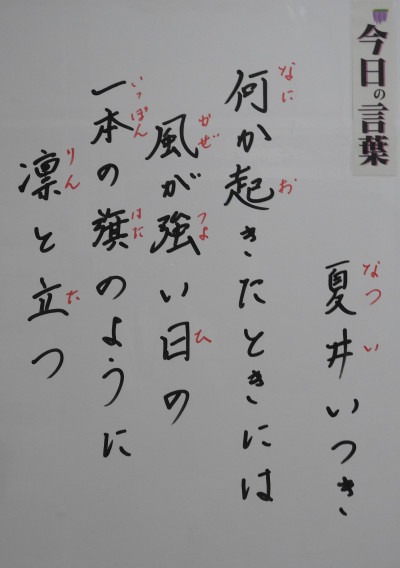 今日の言葉
夏井いつき
なつい
何か起きたときには
なに お
風が強い日の
かぜ つよ ひ
一本の旗のように
いっぽん はた
凛と立つ
りん た